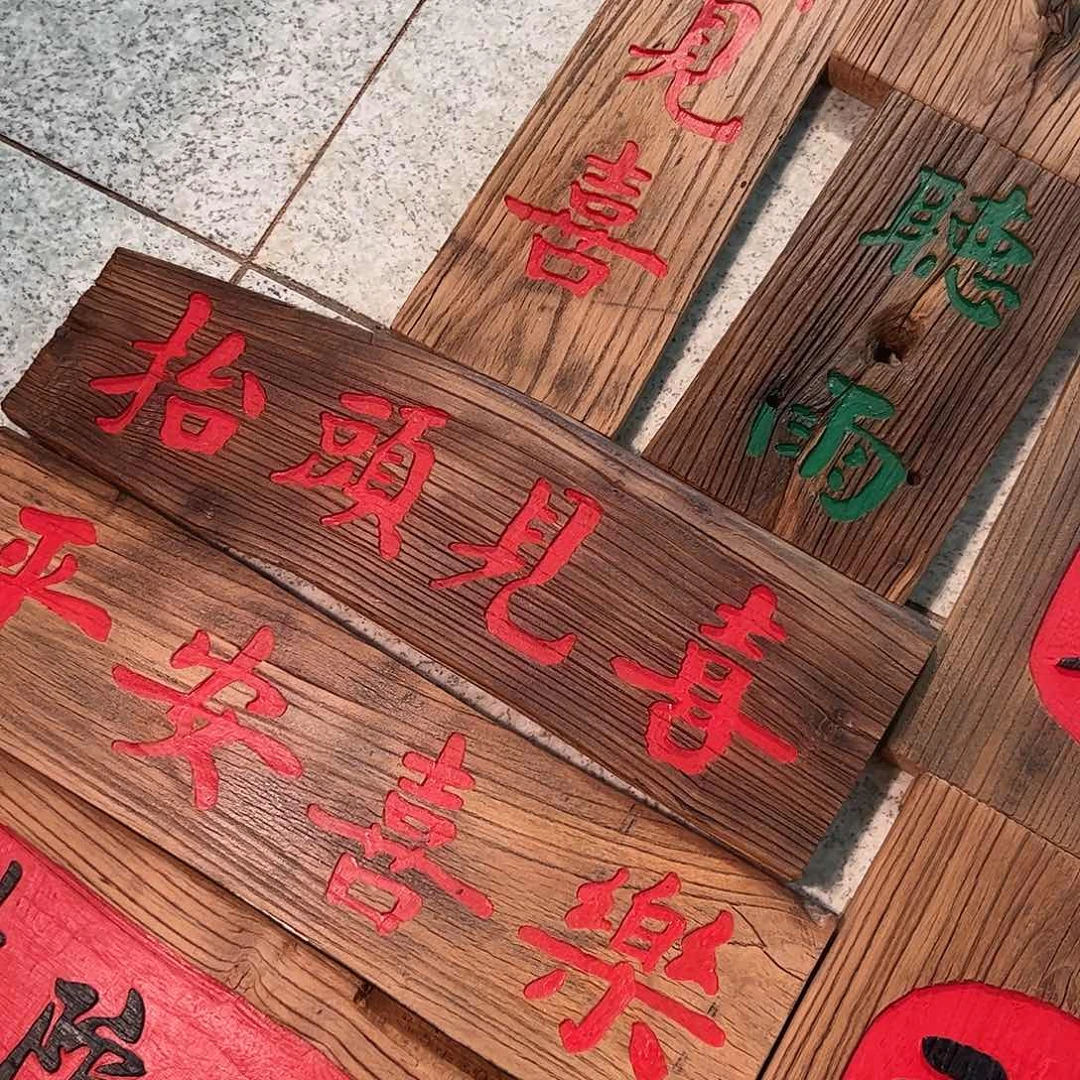 見喜
聽雨
抬頭見喜
平安喜樂